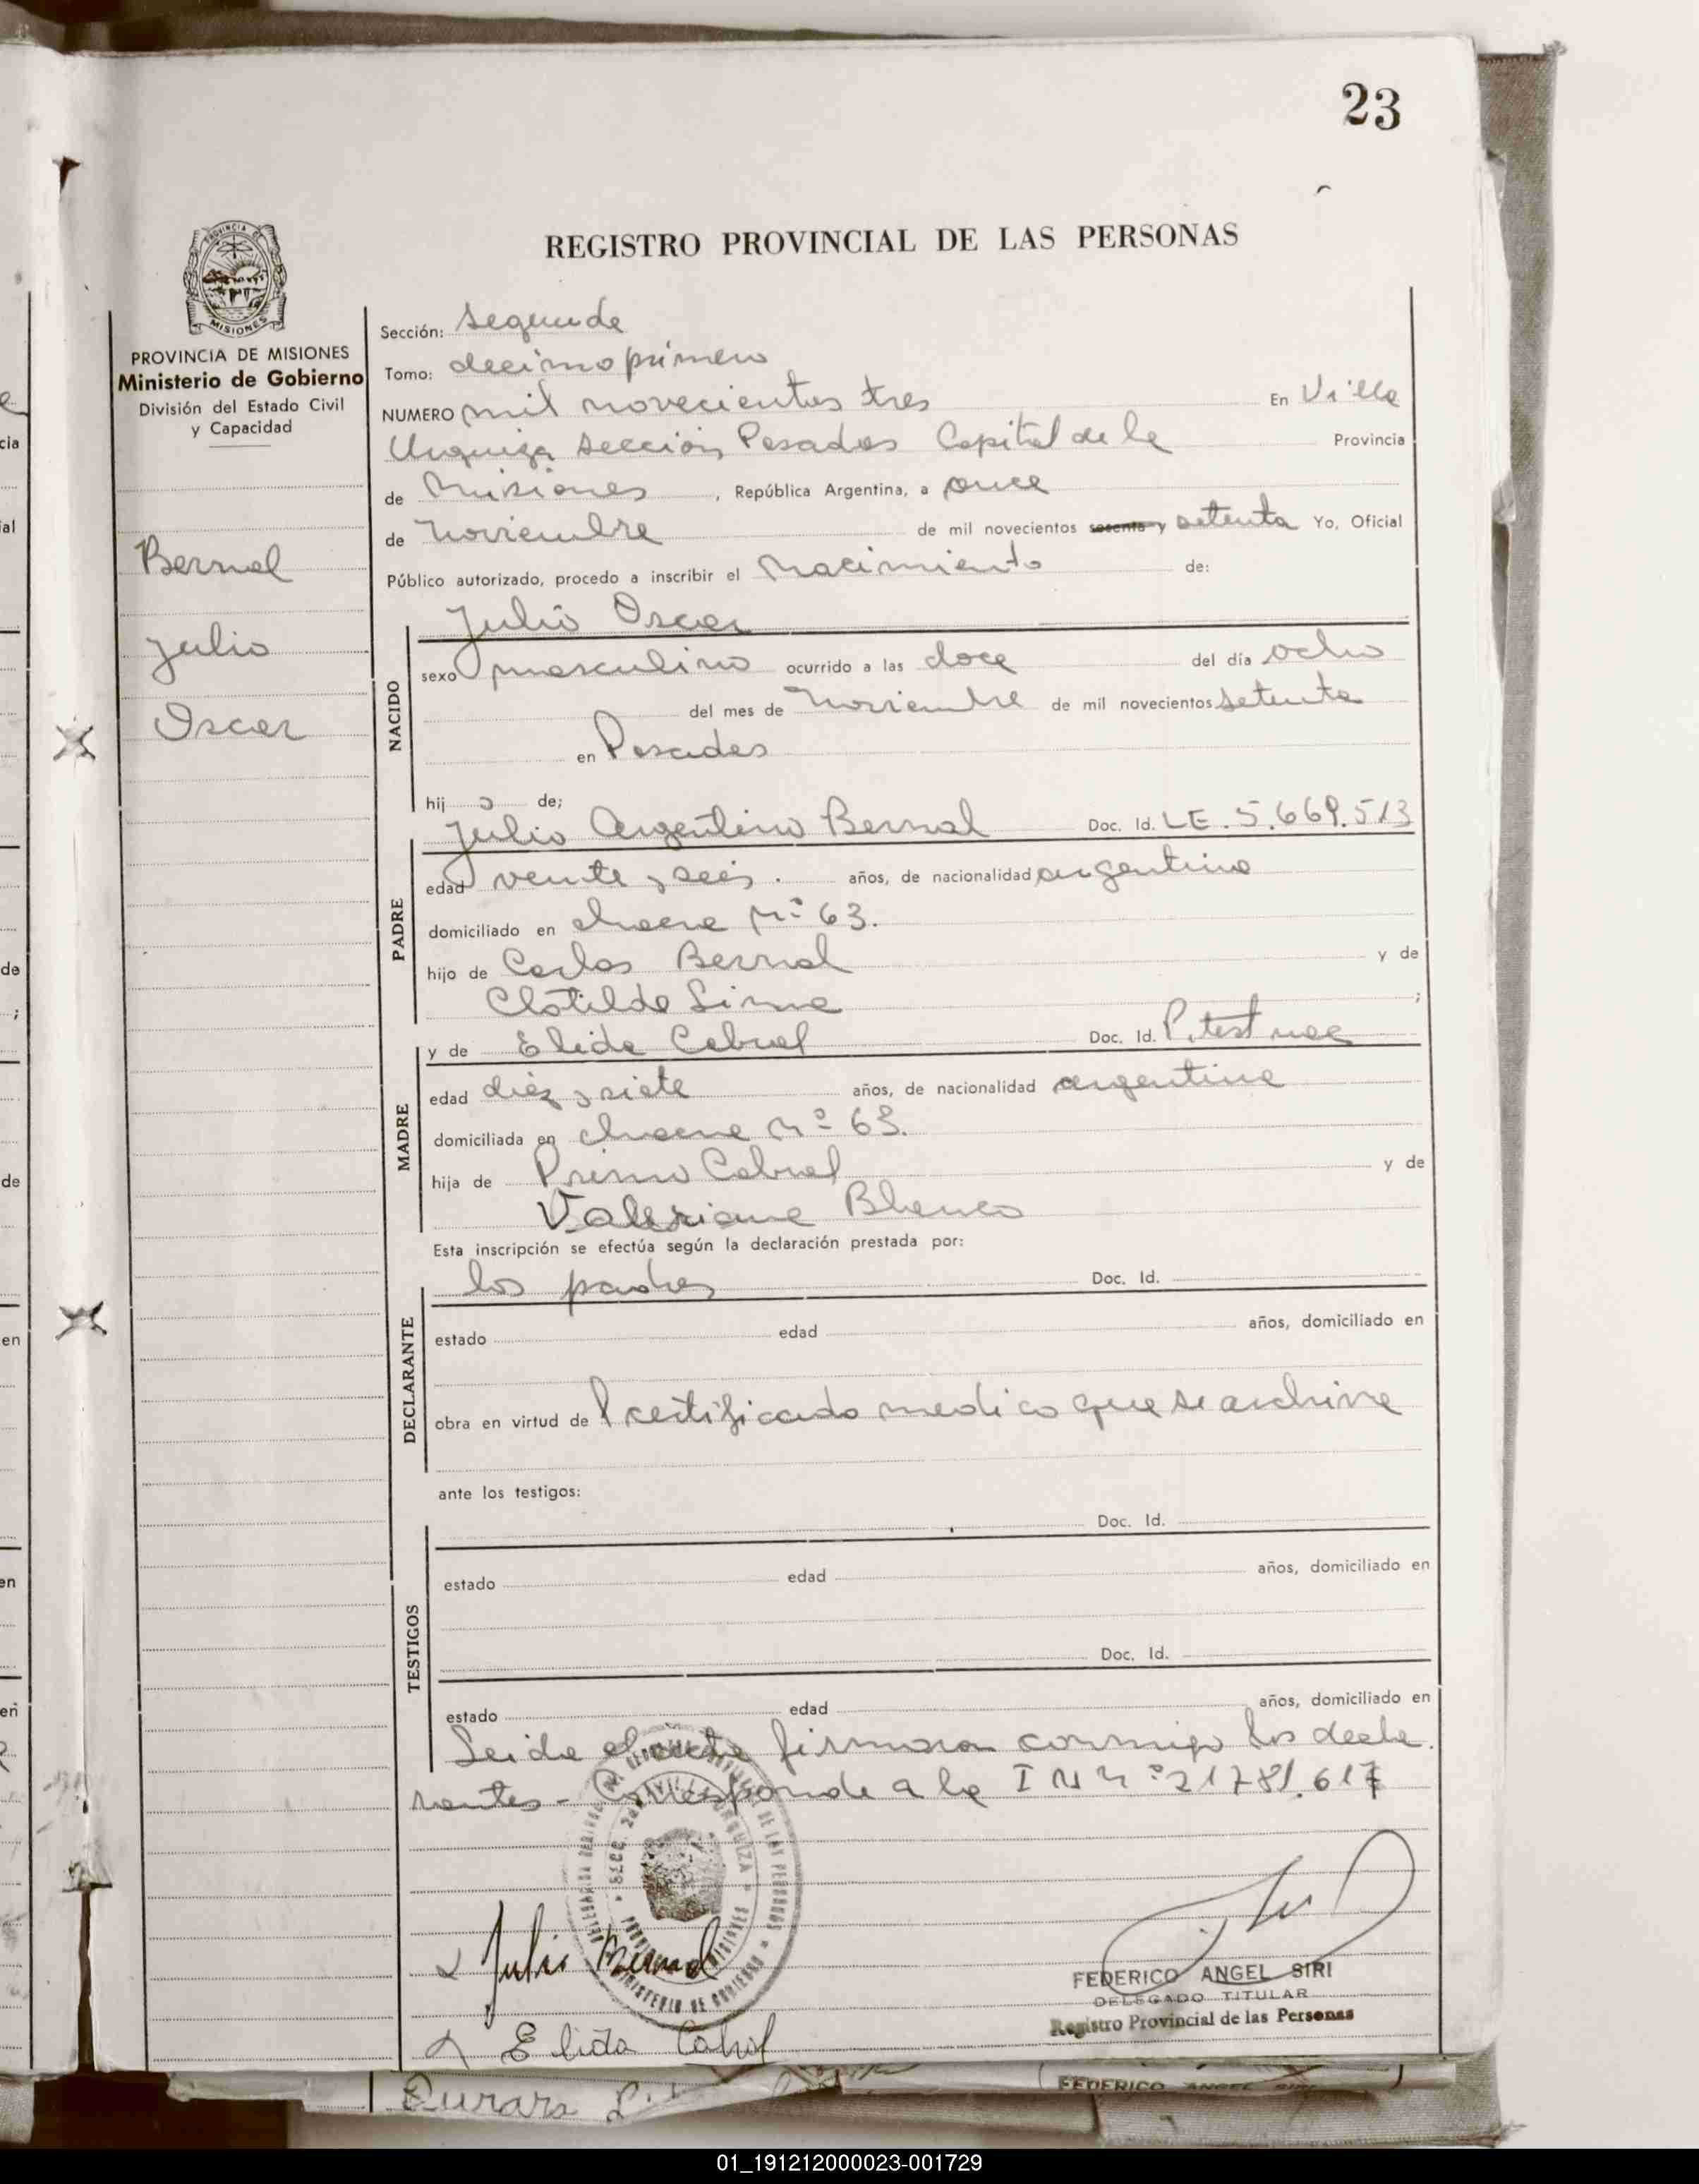 23
REGISTRO PROVINCIAL DE LAS PERSONAS
PROVINCIA DE MISIONES
Ministerio de Gobierno
División del Estado Civil
y Capacidad
Bernal
Julio
Oscar
Sección: segunda
Tomo: decimo primero
NUMERO mil novecientos tres En Villa
Urquiza sección Posadas Capital de la Provincia
de Misiones, República Argentina, a once
de noviembre de mil novecientos sesenta y setenta Yo, Oficial
Público autorizado, procedo a inscribir el nacimiento de:
Julio Oscar
NACIDO
sexo masculino ocurrido a las doce del día ocho
del mes de noviembre de mil novecientos setenta
en Posadas
hijo de;
Julio Argentino Bernal Doc. Id. LE. 5.669.513
PADRE
edad veinte y seis. años, de nacionalidad argentino
domiciliado en chacra Nº 63.
hijo de Carlos Bernal y de
Clotilde ;
y de Elida Cabral Doc. Id.
MADRE
edad diez y siete años, de nacionalidad argentina
domiciliada en chacra Nº 63.
hija de Primo Cabral y de
Valeriana Blanco
Esta inscripción se efectúa según la declaración prestada por:
los padres Doc. Id.
DECLARANTE
estado edad años, domiciliado en
obra en virtud de l certificado medico que se archiva
ante los testigos:
Doc. Id.
TESTIGOS
estado edad años, domiciliado en
Doc. Id.
estado edad años, domiciliado en
Leida el acta firman conmigo los decla
rantes - Corresponde a la I N Nº 21781.617
Julio Bernal
FEDERICO ANGEL SIRI
DELEGADO TITULAR
Registro Provincial de las Personas
Elida Cabral
FEDERICO ANGEL SIRI
01_191212000023-001729